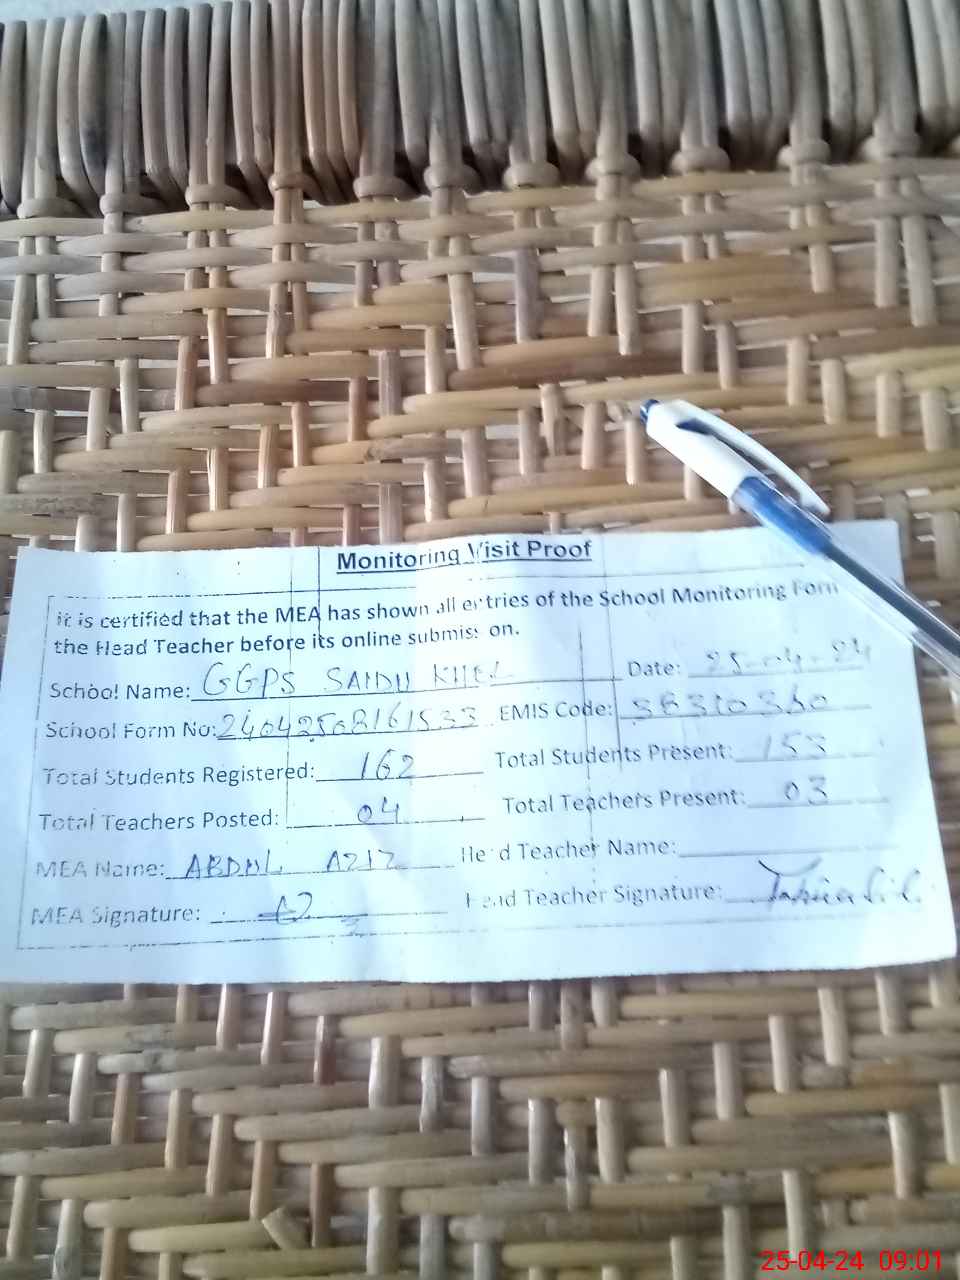 Monitoring Visit Proof
It is certified that the MEA has shown all entries of the School Monitoring Form
the Head Teacher before its online submission.
School Name: GGPS SAIDU KHEL Date: 25-04-24
School Form No: 24042508161533 EMIS Code:
Total Students Registered: 162 Total Students Present: 153
Total Teachers Posted: 04 Total Teachers Present: 03
MEA Name: ABDUL AZIZ Head Teacher Name:
MEA Signature: AZ Head Teacher Signature:
25-04-24 09:01